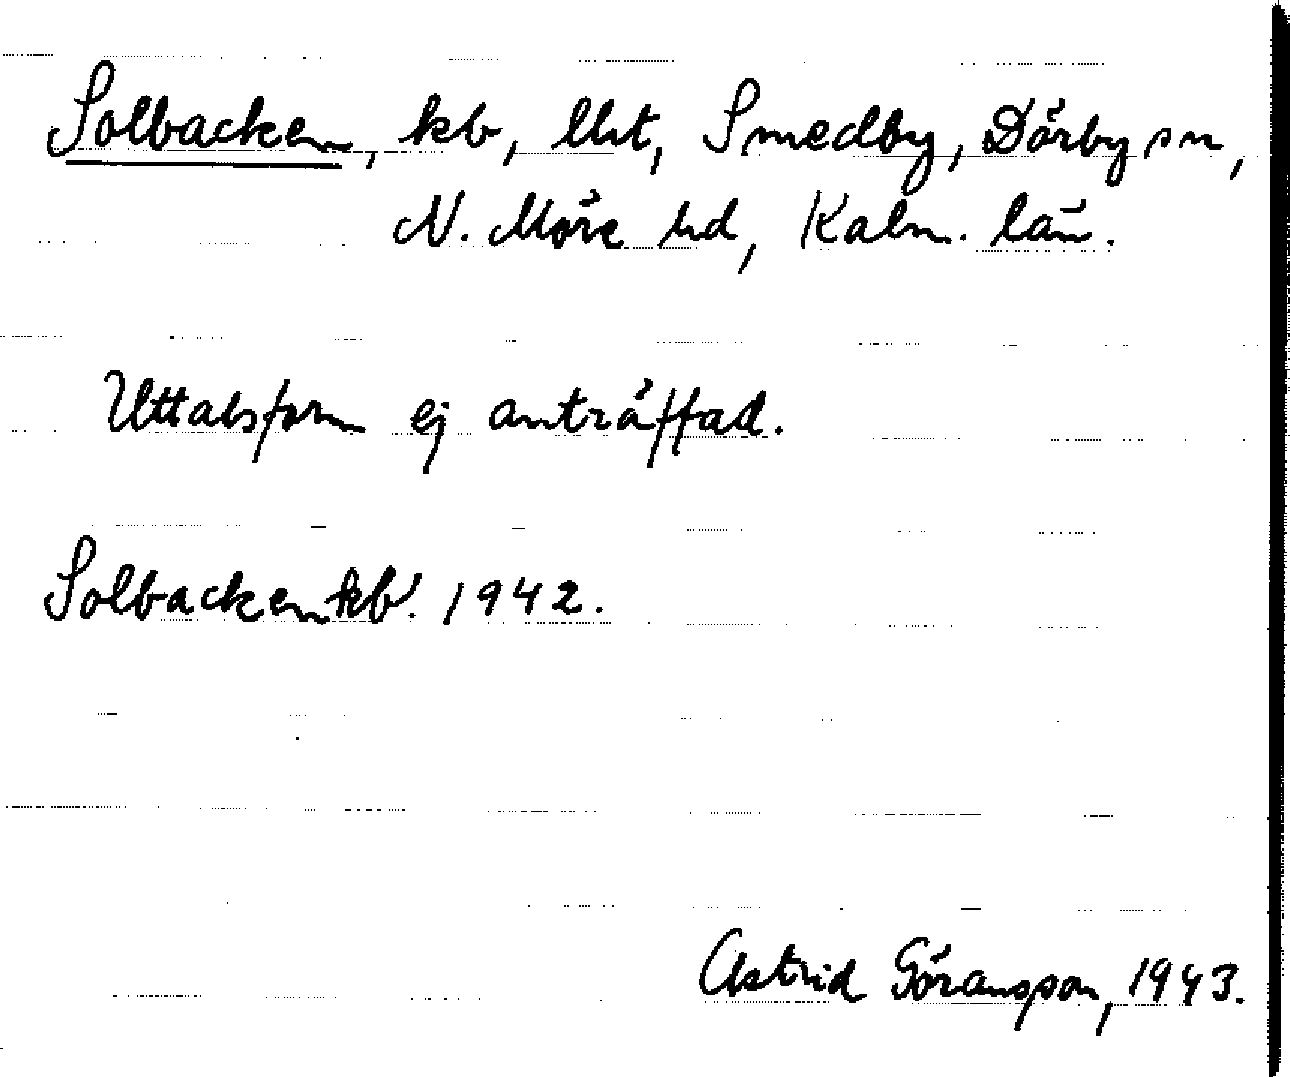 Solbacken, kb, lht, Smedby, Dörby sn,
N. Möre hd, Kalm. län.
Uttalsform ej anträffad.
Solbacken kb. 1942.
Astrid Göransson, 1943.